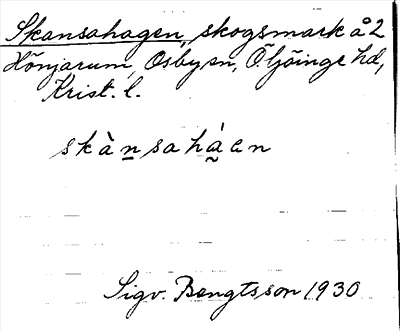 Skansahagen, skogsmark å 2
Hönjarum, Osby sn, Ö. Göinge hd,
Krist. l.
skàn̠sahá̰en
Sigv. Bengtsson 1930